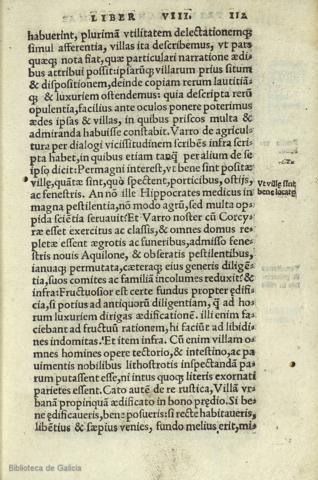 LIBER VIII. 112
habuerint, plurimā vtilitatem delectationemq;
simul afferentia, villas ita describemus, vt pars
quæq; nota fiat, quæ particulari narratione ædi-
bus attribui possit: ipsarūq; villarum prius situm
& dispositionem, deinde copiam rerum lautitiā-
q; & luxuriem ostendemus: quia descripta rerū
opulentia, facilius ante oculos ponere poterimus
ædes ipsas & villas, in quibus priscos multa &
admiranda habuisse constabit. Varro de agricul-
tura per dialogi vicissitudinem scribēs infra scri
pta habet, in quibus etiam tanq̃ per alium de se
ipso dicit: Permagni interest, vt bene sint positæ
villę, quātæ sint, quò spectent, porticibus, ostijs,
ac fenestris. An nō ille Hippocrates medicus in
magna pestilentia, nō modo agrū, sed multa op-
pida sciētia seruauit? Et Varro noster cū Corcy-
ræ esset exercitus ac classis, & omnes domus re-
pletæ essent ægrotis ac funeribus, admisso fene-
stris nouis Aquilone, & obseratis pestilentibus,
ianuaq; permutata, cæteraq; eius generis diligē-
tia, suos comites ac familiā incolumes reduxit? &
infra: Fructuosior est certe fundus propter ędifi-
cia, si potius ad antiquorū diligentiam, q̃ ad ho-
rum luxuriem dirigas ædificationē. illi enim fa-
ciebant ad fructuū rationem, hi faciūt ad libidi-
nes indomitas. Et item infra. Cū enim villam o-
mnes homines opere tectorio, & intestino, ac pa
uimentis nobilibus lithostrotis inspectandā pa-
rum putassent esse, ni intus quoq; literis exornati
parietes essent. Cato autē de re rustica, Villā vr-
banā propinquā ædificato in bono prędio. Si be
ne ędificaueris, bene posueris: si recte habitaueris,
libētius & sæpius venies, fundo melius erit, mi-
Vt villę sint
bene locatę
Biblioteca de Galicia